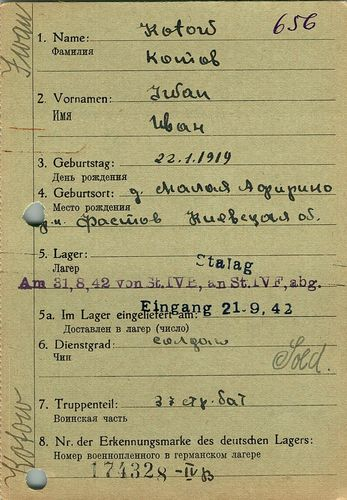 656
Iwan
1. Name: Kotow
Фамилия Котов
2. Vornamen: Iwan
Имя Иван
3. Geburtstag: 22.1.1919
День рождения
4. Geburtsort: д. Малая
Место рождения
Фастов Киевская об.
5. Lager: Stalag
Лагерь
Am 31,8,42 von St.IVB, an St.IVF, abg.
Eingang 21-9. 42
5a. Im Lager eingeliefert am:
Доставлен в лагерь (число)
6. Dienstgrad: солдат
Чин
Sold.
7. Truppenteil: 33 стр. бат
Воинская часть
8. Nr. der Erkennungsmarke des deutschen Lagers:
Номер военнопленного в германском лагере
174328 -IVB
Kotow